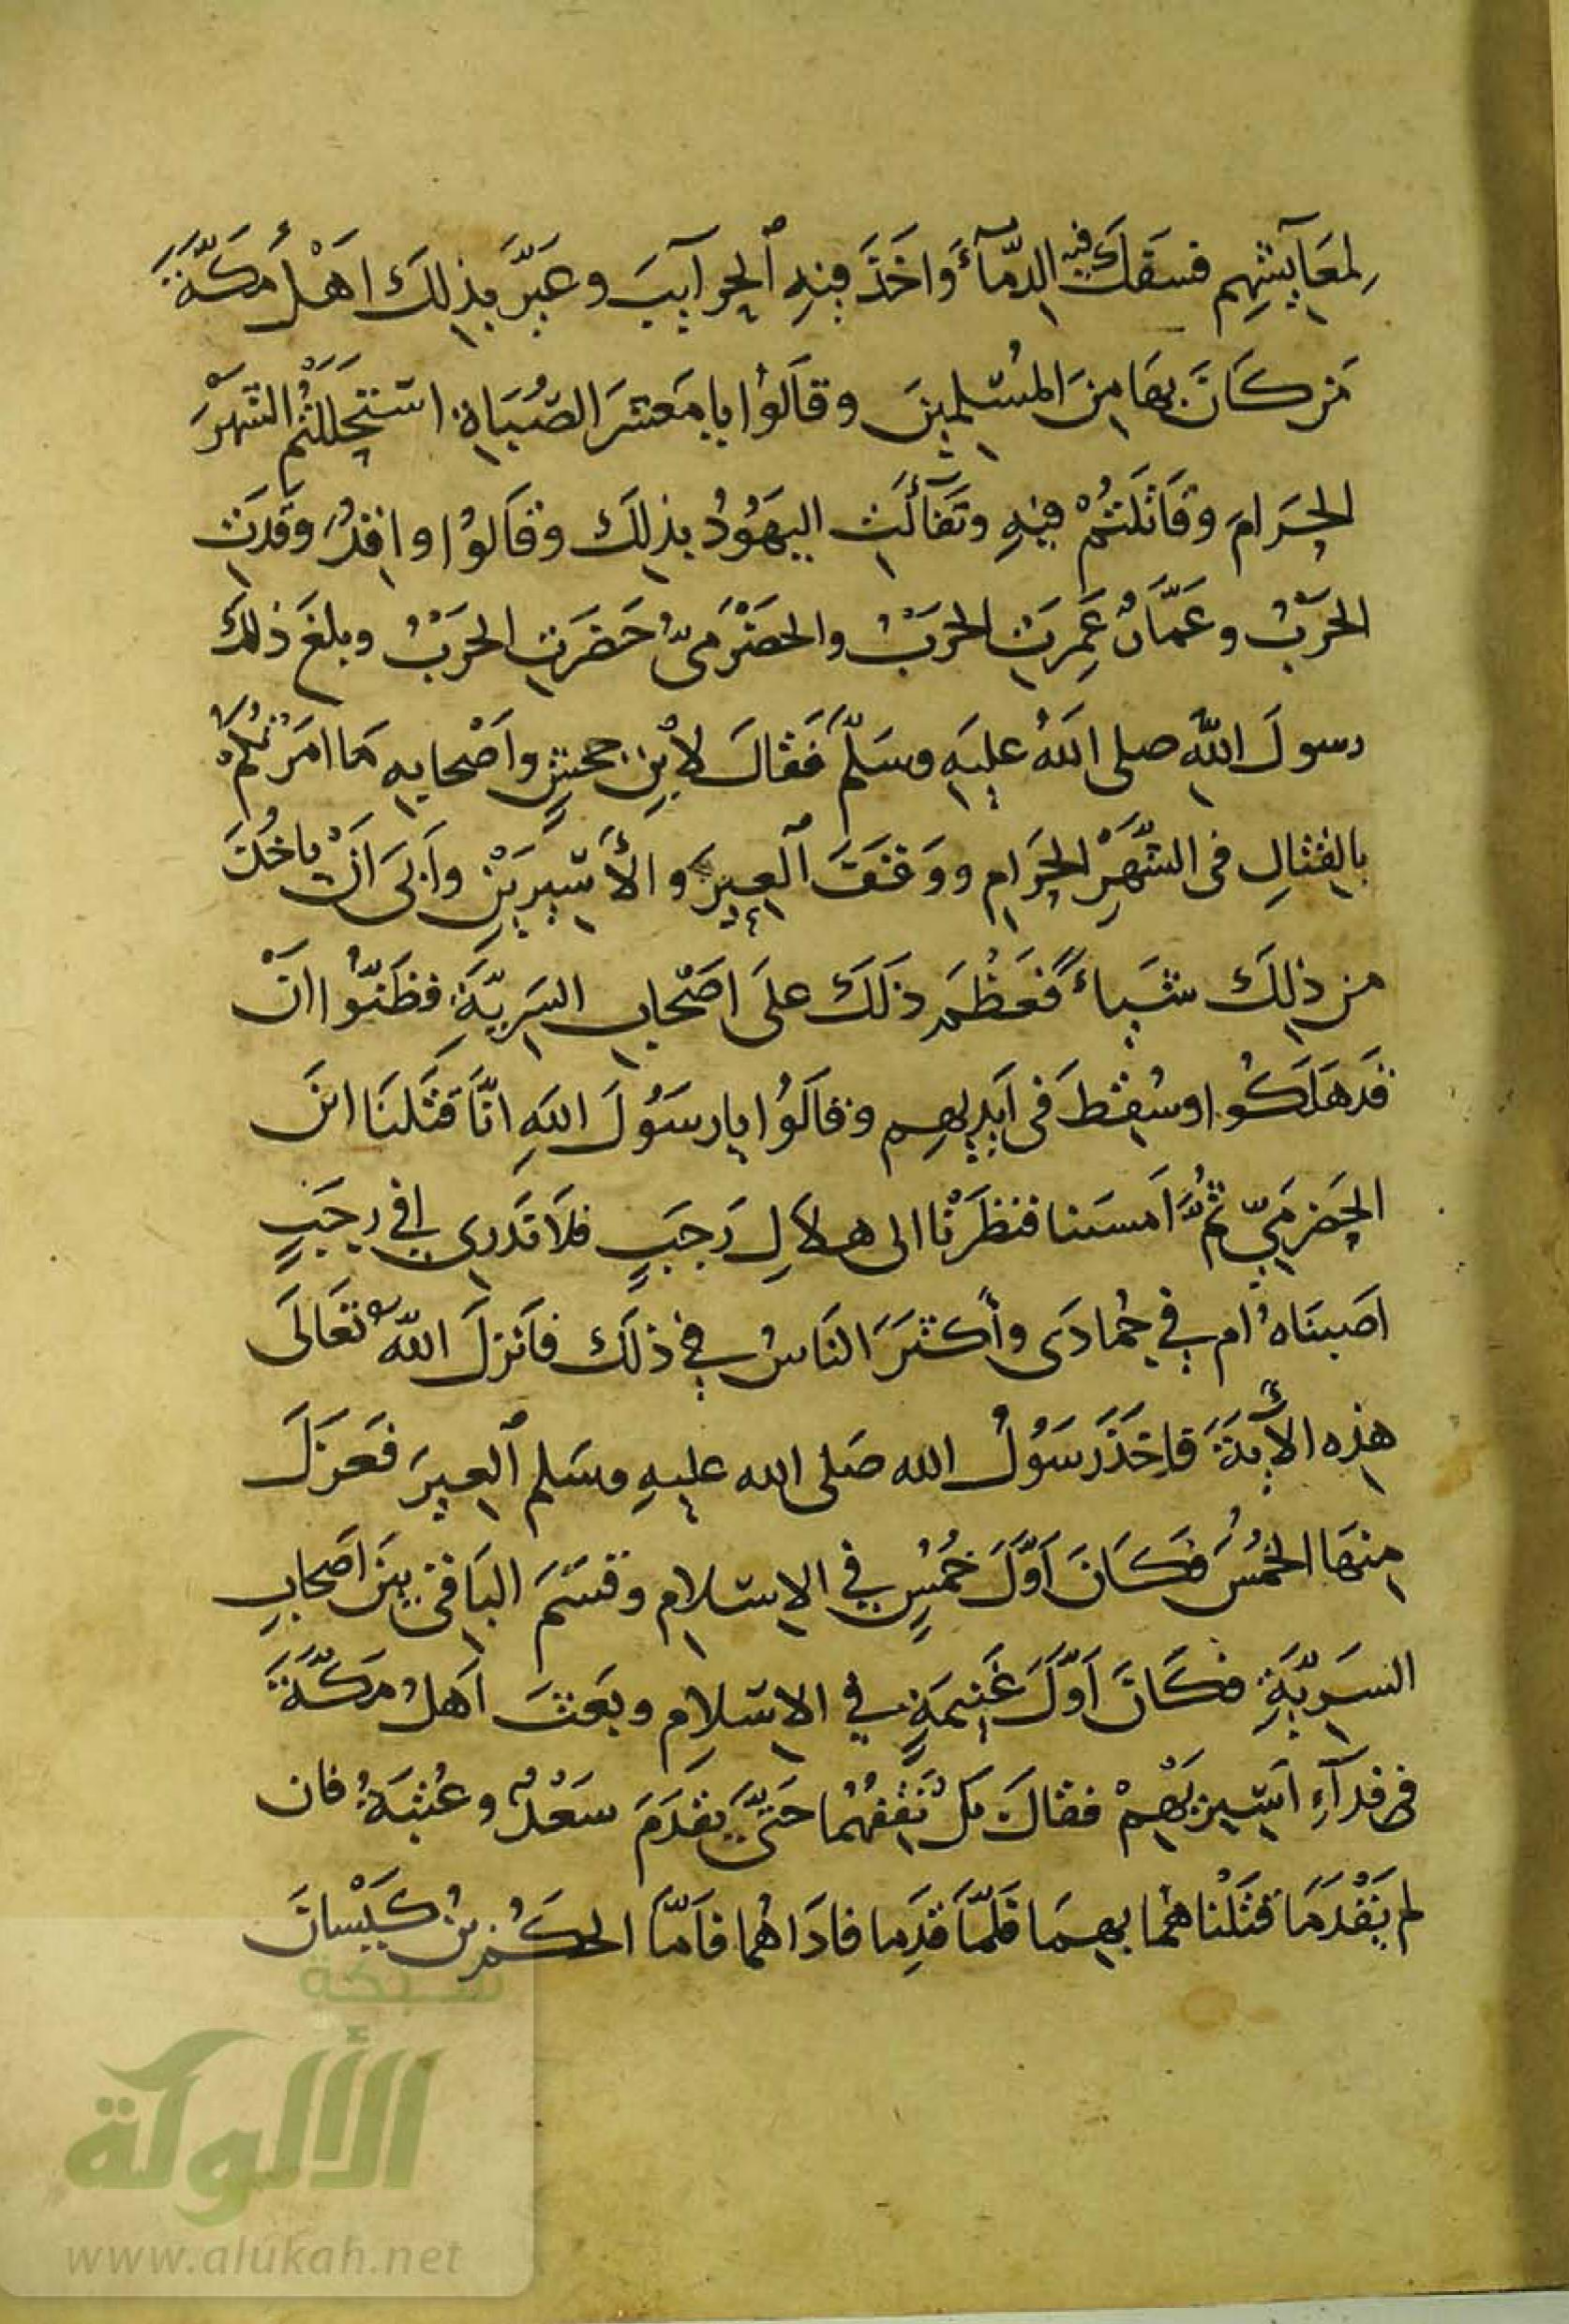 لِمَعَآيِشِهِم فسَفَكَ فيه الدِّمَآءَ وَاخَذَ فِيْهِ ٱلحَرآيبَ وعَيَّرَ بِذٰلِكَ اهْلُ مَكَّةَ
مَن كَانَ بهَا مِنَ المُسْلِمِينَ وقالَوُا يا مَعشرَ الصُّبَاةِ استحلَلْتُمُ الشَّهْرَ
الحَرامَ وقَاتَلتُمْ فِيْهِ وتَفَآئَلَتِ اليهَوُدُ بذلِكَ وقَالوُا واقِدٌ وقَدَتِ
الحَرْبُ وعَمَّارٌ عَمِرَتِ الحَرْبُ والحَضْرَمىُّ حَضَرَتِ الحَرْبُ وبلغَ ذلك
رسولَ اللهِ صلى اللهُ عليهِ وسَلَّم فَقالَ لابْنِ جحشٍ واَصْحابِهِ مَا امَرْتُكُمْ
بالقتالِ فى الشَّهْرِ الحَرَامِ ووَقَفَ ٱلعِيرَ والأَسِيرَيْنِ واَبىَ اَنْ ياخُذَ
من ذٰلِكَ شَياءً فَعَظُمَ ذَلكَ علىَ اصَحْابِ السَرِيَّةِ فظَنُّوا انْ
قَد هَلَكُوا وسُقِطَ فى اَيدِيهِم وقالَوُا يا رسَوُلَ اللهِ انَّا قتَلنَا ابنَ
الحَضرَمِيّ ثُمَّ اَمسَينا فنظَرْنا الى هلاَلِ رَجَبٍ فلاَ ندَري افي رجَبٍ
اصَبنَاهُ ام في جُمادَى وأَكثَرَ النَاسُ في ذلَك فاَنزلَ اللهُ تعَالَى
هٰذِهِ الأَيةَ فاخَذَ رَسوُلُ الله صَلى الله عليهِ وسَلم ٱلعِيرَ فعَزَلَ
مِنهَا الخُمُسَ فكَانَ اَوَّلَ خُمُسٍ في الاسلامِ وقسَمَ البَاقىَ بينَ اَصحابِ
السَرِيَّةِ فكَانَ اَوّلَ غَنِيمَةٍ في الاسلاِمِ وبَعثَ اَهلُ مَكَّةَ
فى فدَآءِ اَسِيرَيْهِمْ فقالَ بَلْ نَقِفُهُما حَتّىَ يقدَمَ سَعْدٌ وعُتبَةُ فان
لم يَقْدَمَا قتَلْناهُما بهِمَا فلَمّاَ قدَمِا فادَاهُما فاَمّاَ الحكَمُ بنُ كَيْسانَ
شبكة
الألوكة
www.alukah.net